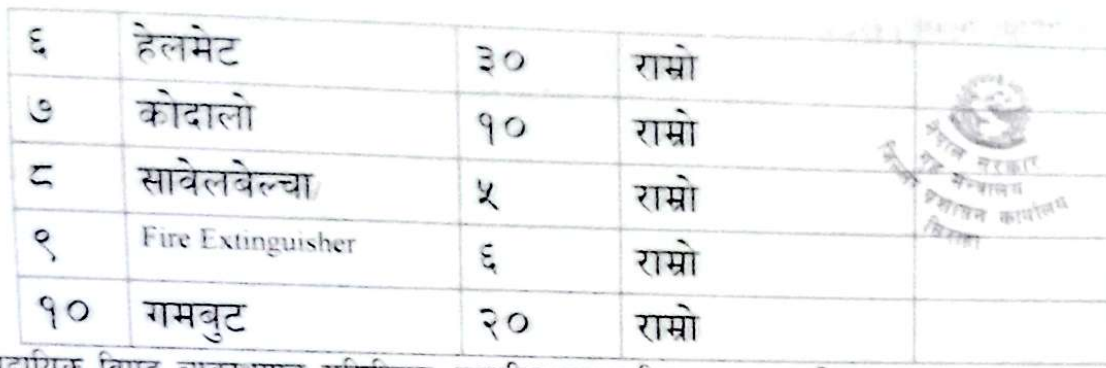 ६ हेलमेट ३० राम्रो
७ कोदालो १० राम्रो
८ सावेलबेल्चा ५ राम्रो
९ Fire Extinguisher ६ राम्रो
१० गमबुट २० राम्रो
नेपाल सरकार
गृह मन्त्रालय
जिल्ला प्रशासन कार्यालय